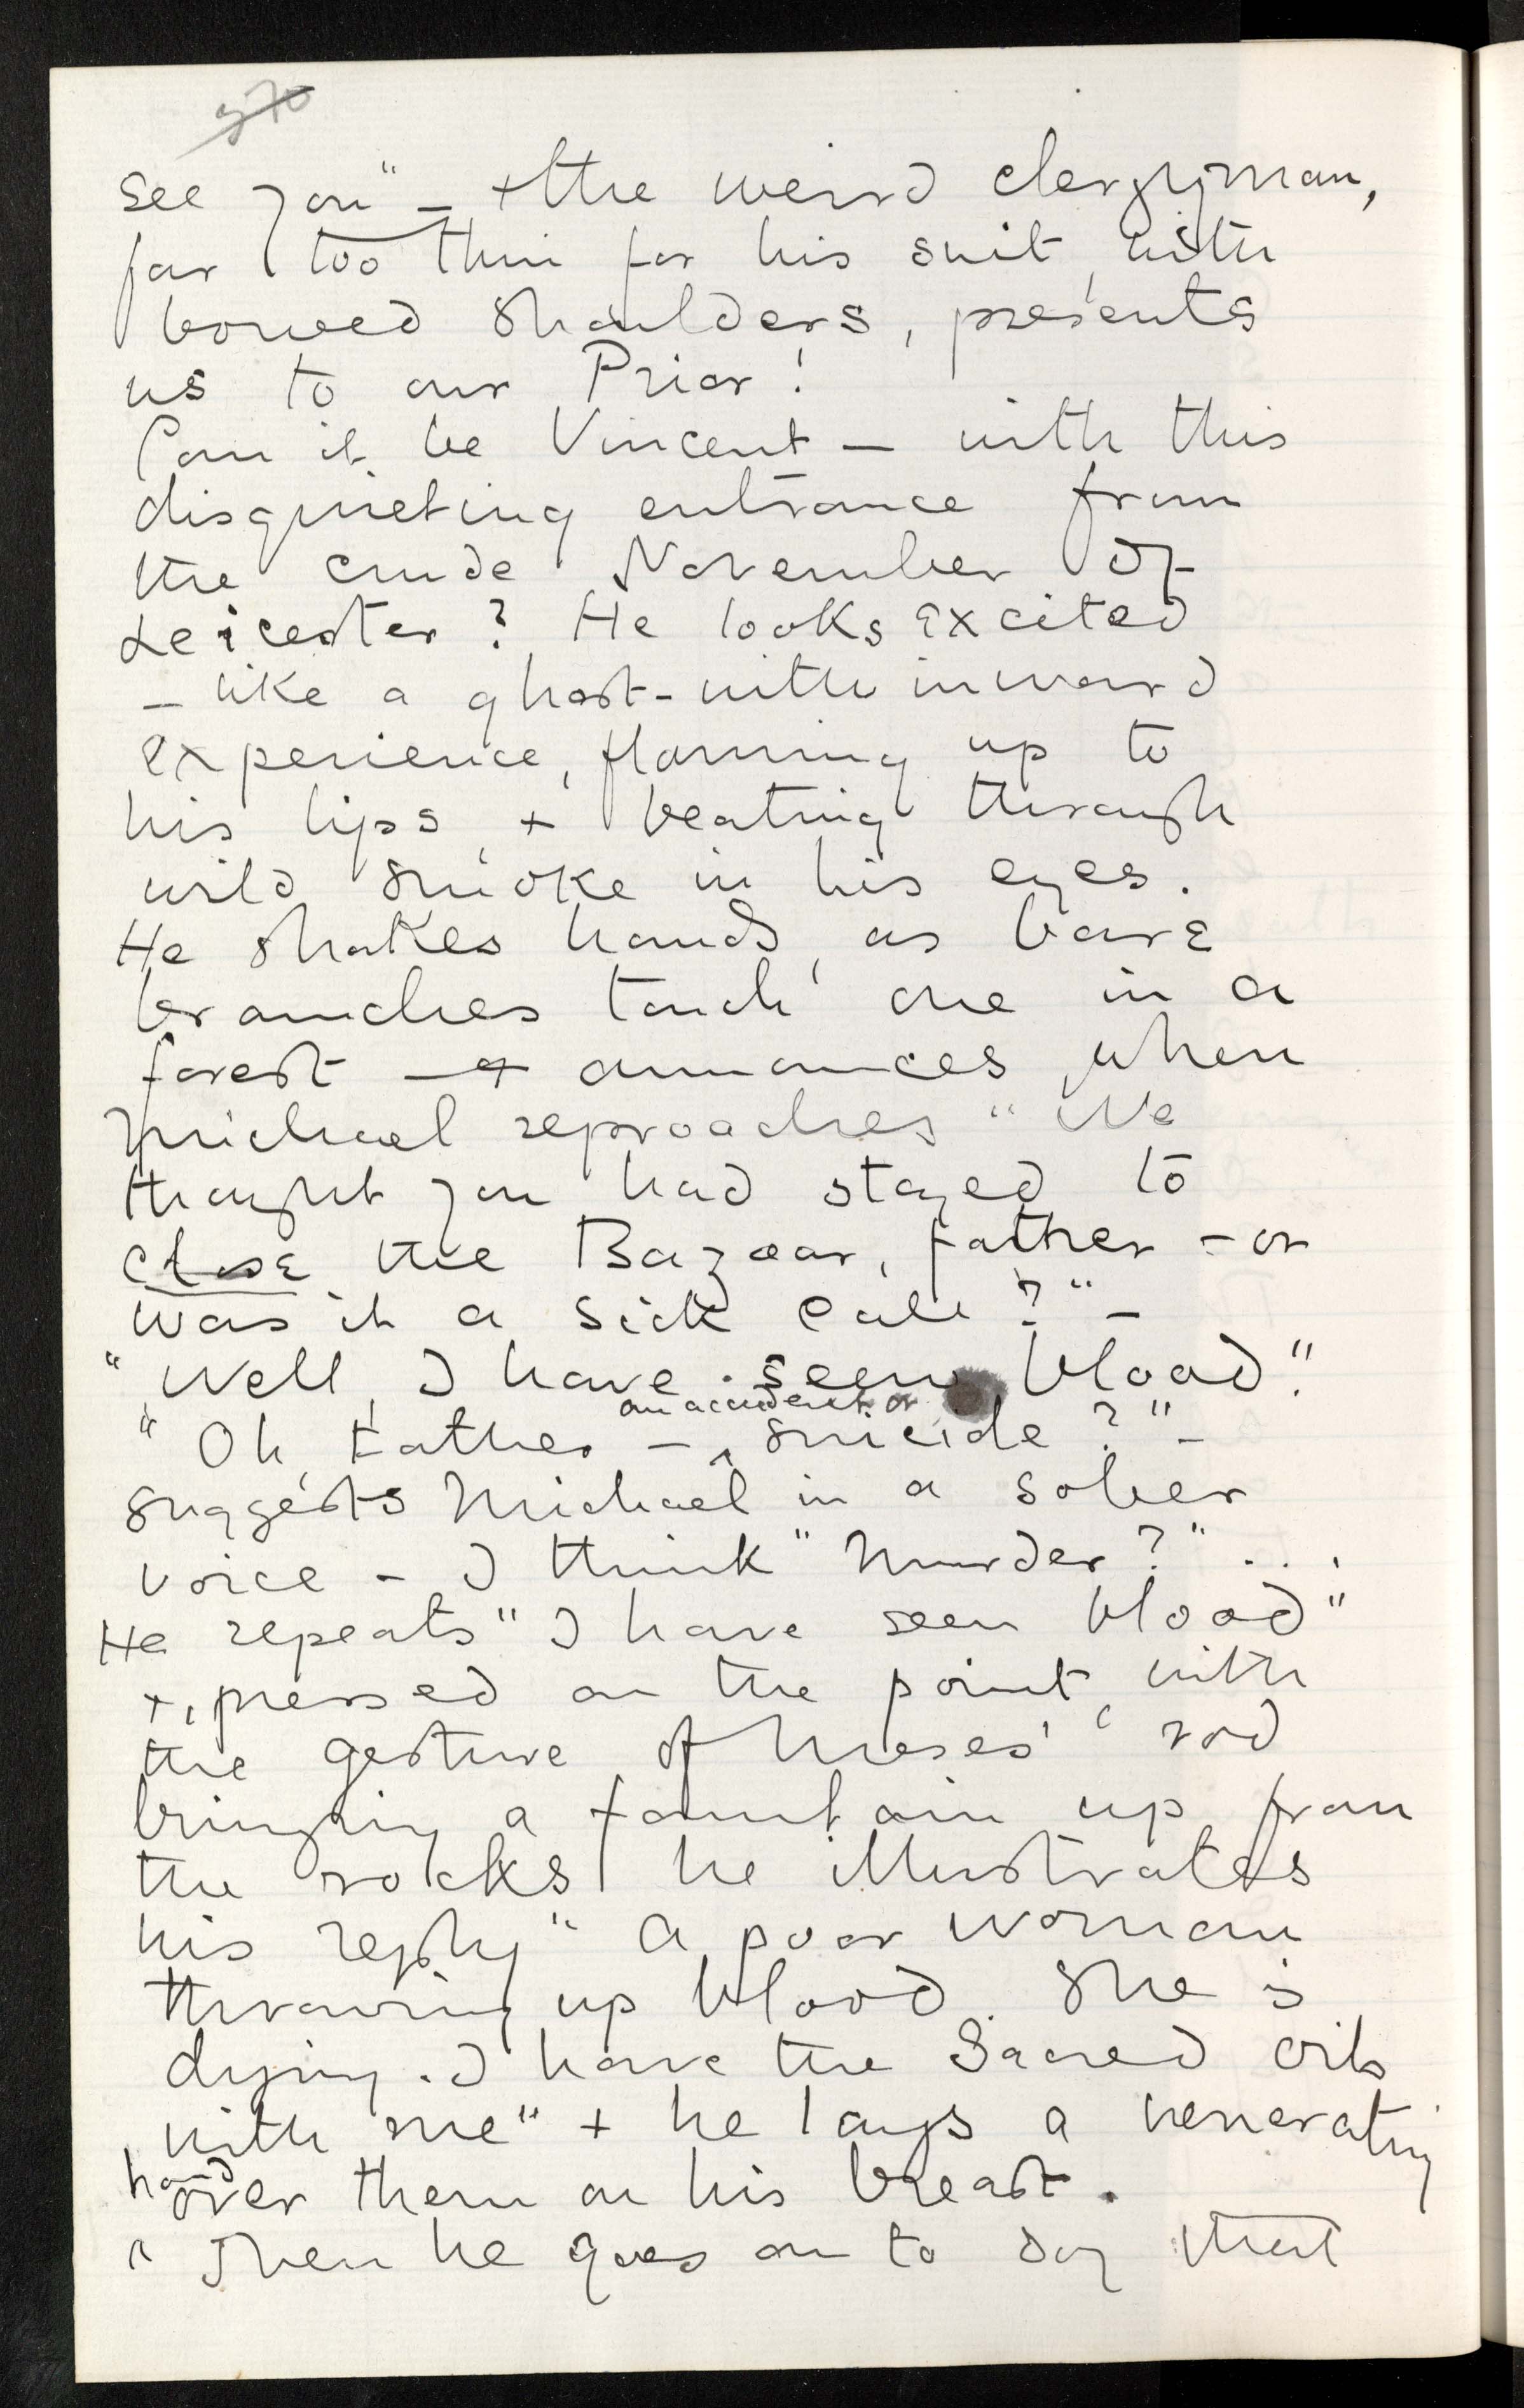 see you" – + the weird clergyman,
far too thin for his suit, with
bowed shoulders, presents
us to our Prior!
Can it be Vincent – with this
disquieting entrance from
the crude November of
Leicester? He looks excited
– like a ghost – with inward
experience, flaming up to
his lips + beating through
wild smoke in his eyes.
He shakes hands, as bare
branches touch one in a
forest – + announces, when
Michael reproaches "We
thought you had stayed to
close the Bazaar, father – or
was it a sick call?" –
"Well, I have seen blood".
"Oh, Father – an accident or suicide?" –
suggests Michael in a sober
voice – I think "Murder?" ...
He repeats "I have seen blood"
+, pressed on the point, with
the gesture of Moses' rod
bringing a fountain up from
the rocks he illustrates
his reply " A poor woman
throwing up blood. She is
dying. I have the Sacred oils
with me" + he lays a venerating
hand over them on his breast.
Then he goes on to say that